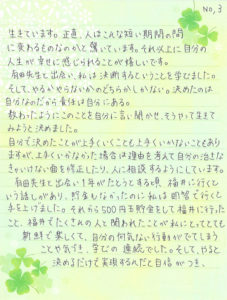 No,3
生きています。正直、人はこんな短い期間の間
に変わるものなのかと驚いています。それ以上に自分の
人生が幸せに感じられることが嬉しいです。
有田先生と出会い、私は決断するということを学びました。
そして、やるかやらないかのどちらかしかない。決めたのは
自分なのだから責任は自分にある。
教わったようにこのことを自分に言い聞かせ、そうやって生きて
みようと決めました。
自分で決めたことが上手くいくことも上手くいかないこともあり
ますが、上手くいかなかった場合は理由を考えて自分の治さな
きゃいけない面を修正したり、人に相談するようにしています。
有田先生と出会い1年がたとうとする頃、福井に行くと
いう話しがあり、貯金もなかったのに私は即答で行くと
手を上げました。それから500円玉貯金をして福井に行った
こと、福井でたくさんの人と関われたことが私にとってとても
新鮮で楽しくて、自分の何気ない行動がでてしまう
ことや気づき、学びの連続でした。そして、やると
決めるだけで実現するんだと自信がつき、